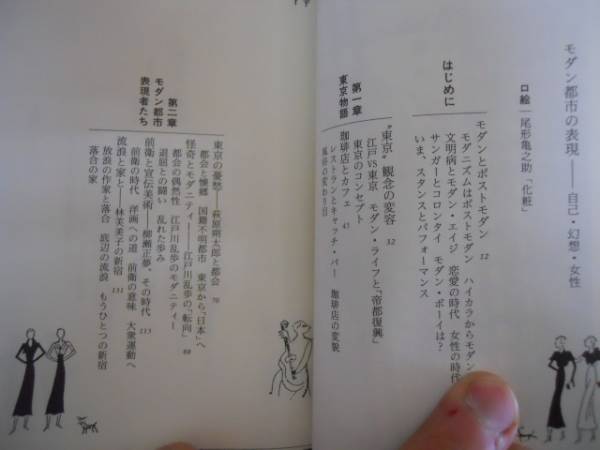 モダン都市の表現――自己・幻想・女性
口絵｜尾形亀之助「化粧」
はじめに
モダンとポストモダン 12
モダニズムはポストモダン　ハイカラからモダン
文明病とモダン・エイジ　恋愛の時代　女性の時代
サンガーとコロンタイ　モダン・ボーイは？
いま、スタンスとパフォーマンス
第一章
東京物語
“東京”観念の変容 32
江戸VS東京　モダン・ライフと「帝都復興」
東京のコンセプト
珈琲店とカフェ 47
レストランとキャッチ・バー　珈琲店の変貌
風俗の変わり目
第二章
モダン都市
表現者たち
東京の憂愁――萩原朔太郎と都会 70
都会と憧郷　国籍不明都市　東京から「日本」へ
怪奇とモダニティ――江戸川乱歩の「転向」 89
都会の偶然性　江戸川乱歩のモダニティー
退屈との闘い　乱れた歩み
前衛と宣伝美術――柳瀬正夢、その時代 113
前衛の時代　洋画への道　前衛の意味　大衆運動へ
流浪と家と――林芙美子の新宿 131
放浪の作家と落合　底辺の流浪　もうひとつの新宿
落合の家